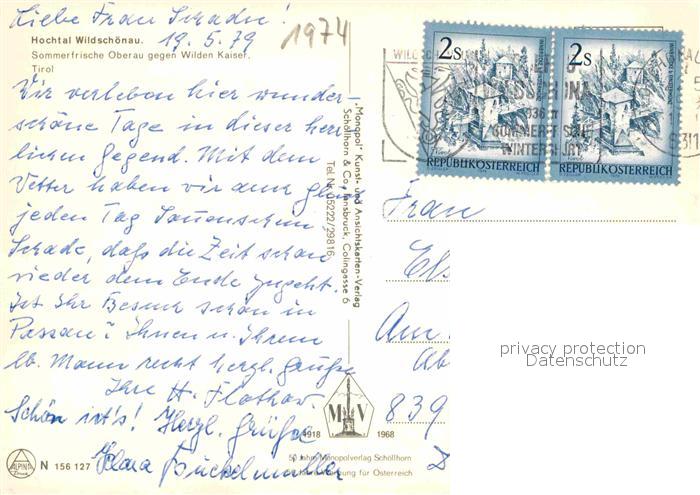 Liebe Frau Schadn!
19.5.79
1974
Hochtal Wildschönau.
Sommerfrische Oberau gegen Wilden Kaiser.
Tirol
Wir verleben hier wunder-
schöne Tage in dieser herr-
lichen Gegend. Mit dem
Wetter haben wir auch Glück
jeden Tag Sonnenschein.
Schade, daß die Zeit schon
wieder dem Ende zugeht.
Ist Ihr Besuch schon in
Passau? Ihnen u. Ihrem
lb. Mann recht herzl. Grüße
Ihre H. Flothow.
Schön ist's! Herzl. Grüße
Klara Bückelmüller
N 156 127
"Monopol" Kunst- und Ansichtskarten-Verlag
Schöllhorn & Co., Innsbruck, Colingasse 6
Tel. Nr. 05222/29816
2s
REPUBLIK ÖSTERREICH
2s
REPUBLIK ÖSTERREICH
936 m
SOMMERFRISCHE
WINTERSPORT
Frau
Am
839
privacy protection
Datenschutz
M V
1918 1968
50 Jahre Monopolverlag Schöllhorn
50 Jahre Werbung für Österreich